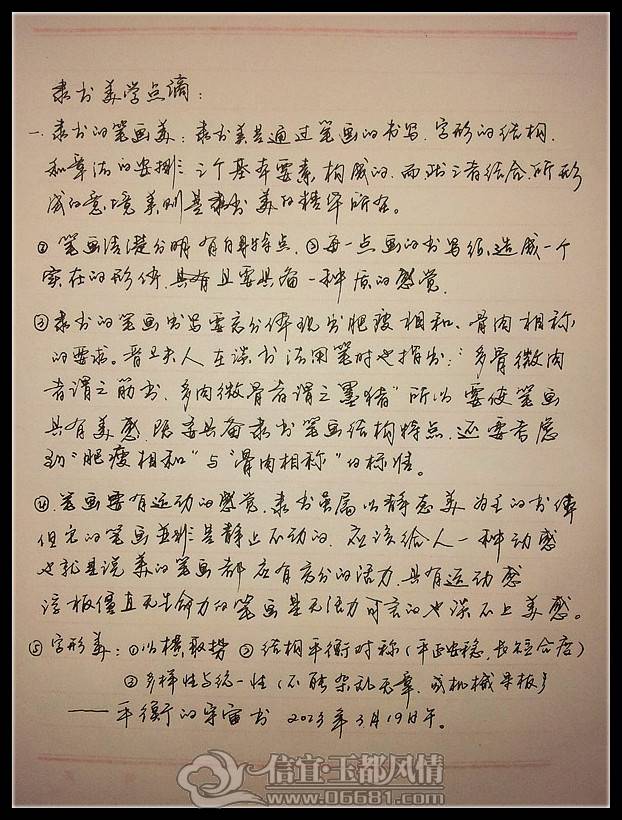 隶书美学点滴：
一、隶书的笔画美：隶书美是通过笔画的书写、字形的结构、
和章法的安排三个基本要素构成的，而此三者结合所形
成的意境美则是隶书美的精华所在。
② 笔画清楚分明有自身特点，③每一点画的书写须造成一个
实在的形体，具有且要具备一种质的感觉。
③ 隶书的笔画书写要充分体现出肥瘦相和、骨肉相称
的要求。晋卫夫人在谈书法用笔时也指出：“多骨微肉
者谓之筋书，多肉微骨者谓之墨猪”所以要使笔画
具有美感，除要具备隶书笔画结构特点，还要考虑
到“肥瘦相和”与“骨肉相称”的标准。
④ 笔画要有运动的感觉，隶书虽属以静态美为主的书体
但它的笔画并非是静止不动的，应该给人一种动感
也就是说美的笔画都应有充分的活力，具有运动感
谆板僵直无生命力的笔画是无活力可言的也谈不上美感。
⑤ 字形美：①以横取势 ②结构平衡对称（平正安稳，长短合度）
③多样性与统一性（不能杂乱无章，或机械呆板）
——平衡的宇宙书 2023年3月19日午。
信宜·玉都风情
www.06681.com